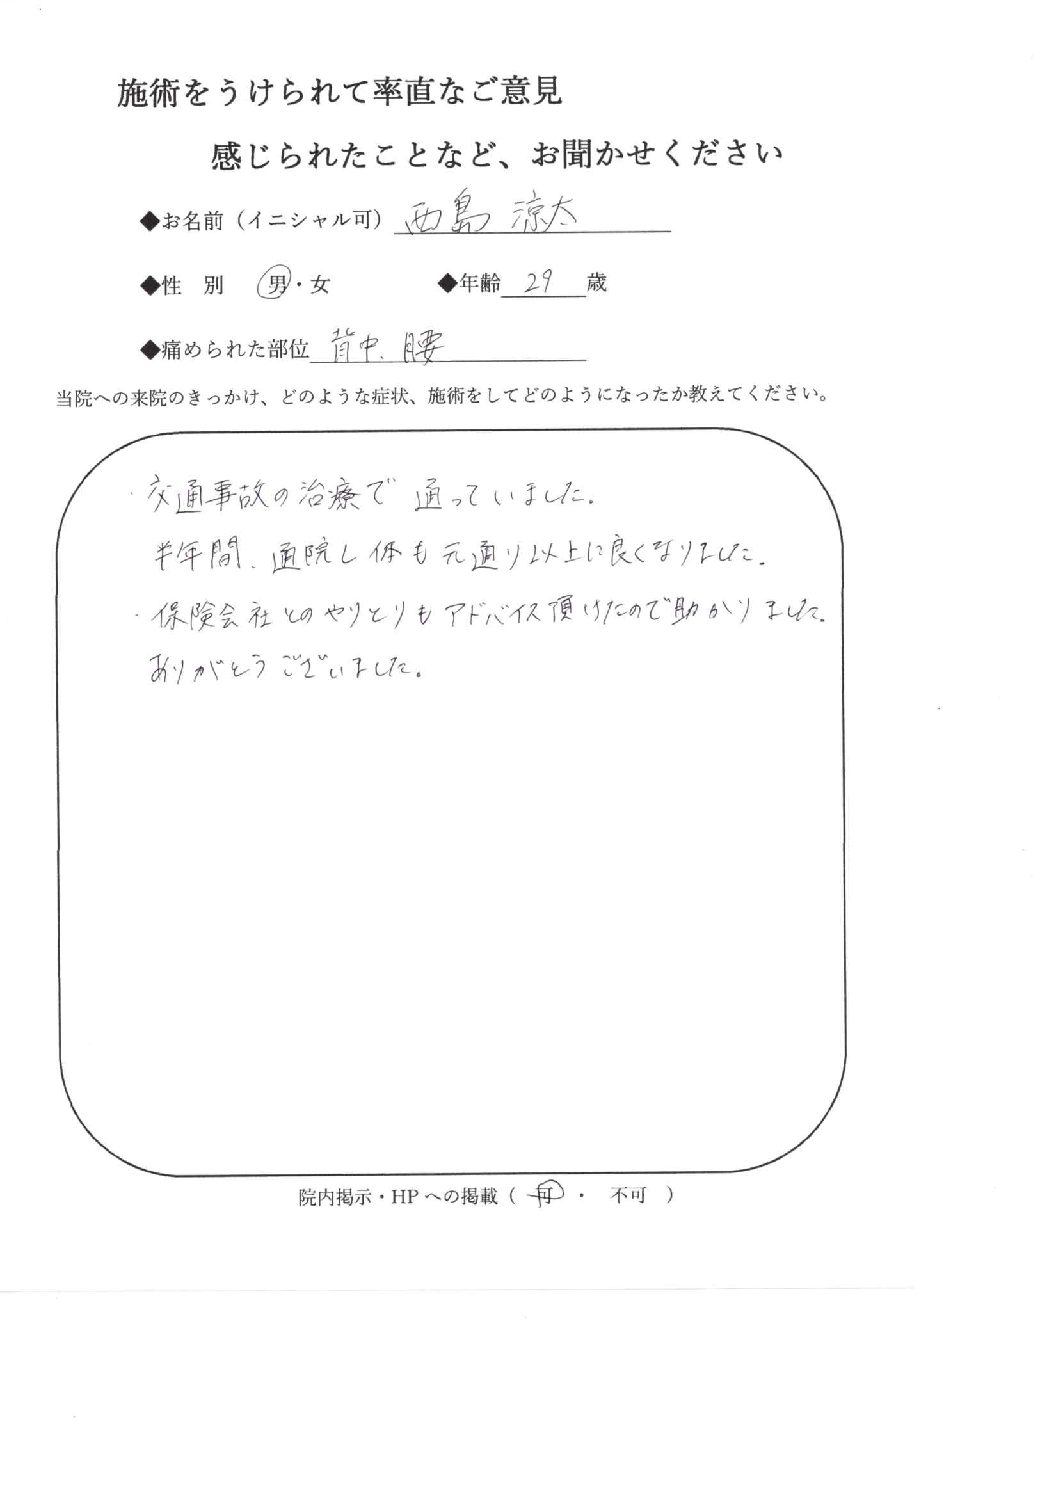 施術をうけられて率直なご意見
感じられたことなど、お聞かせください
◆お名前（イニシャル可） 西島 涼太
◆性 別 男・女 ◆年齢 29 歳
◆痛められた部位 背中、腰
当院への来院のきっかけ、どのような症状、施術をしてどのようになったか教えてください。
・交通事故の治療で通っていました。
半年間、通院し体も元通り以上に良くなりました。
・保険会社とのやりとりもアドバイス頂けたので助かりました。
ありがとうございました。
院内掲示・HPへの掲載（ 可 ・ 不可 ）